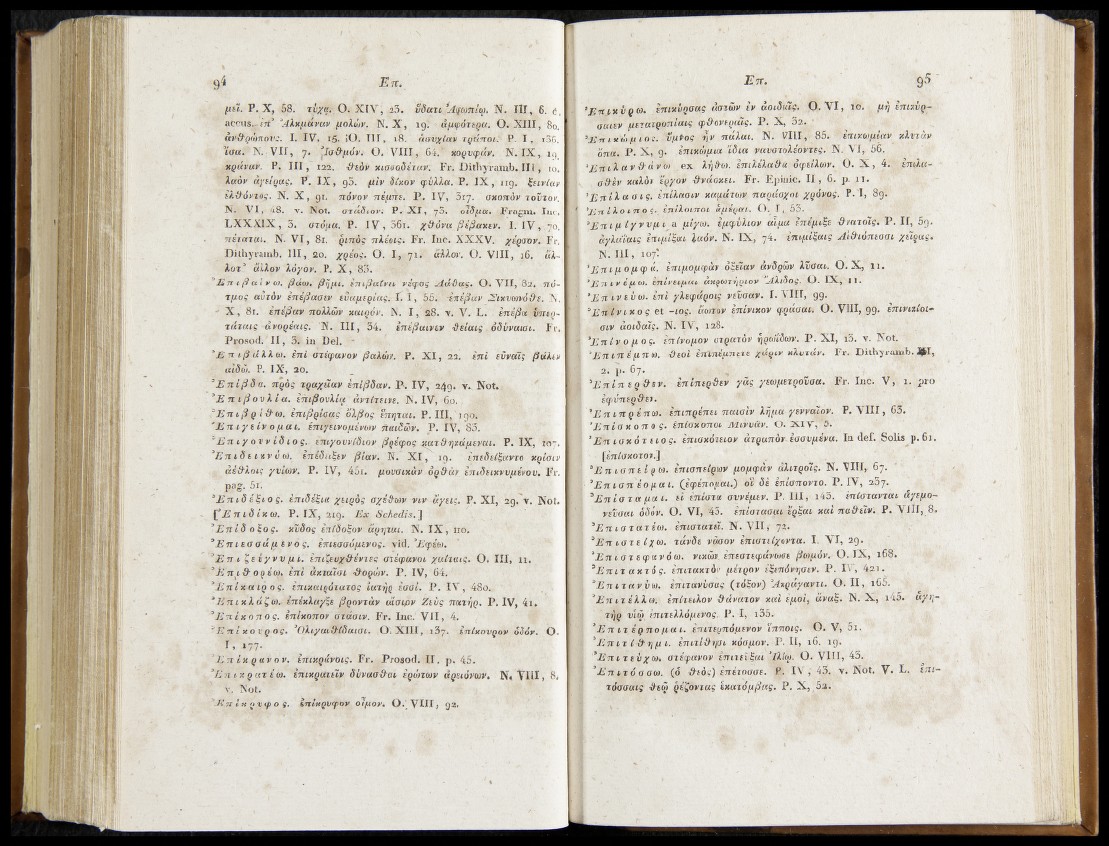 94 Επ.
μεῖ. P. X, 58. τύχᾳ. O. XIV, 23. ὕδατι Ἀφωπίῳ. N. III, 6. c.
accus. ἐπ' Ἀλκμάναν μολών. N. X, 19. ἀμφότερα. O. XIII, 80.
ἀνθρώπους. I. IV, 15. O. III, 18. ἀστιχίαν τράποι. P. I, 136.
ἴσα. N. VII, 7. Ἰσθμόν. O. VIII, 64. κορυφάν. N. IX, 19.
κράναν. P. III, 122. θεὸν κισσοδέταν. Fr. Dithyramb. III, 10.
λαὸν ἀγείρας. P. IX, 93. μὶν δίκον φύλλα. P. IX, 119. ξεινίαν
ἐλθόντος. N. X, 91. πόνον πέμπε. P. IV, 317. σκοπὸν τοῦτον.
N. VI, 48. v. Not. στάδιον. P. XI, 73. οἶδμα. Fragm. Inc.
LXXXIX, 3. στόμα. P. IV, 361. χθόνα βέβακεν. I. IV, 70.
πέταται. N. VI, 81. ῥιπὸς πλέως. Fr. Inc. XXXV. χέρσον. Fr.
Dithyramb. III, 20. χρέος. O. I, 71. ἄλλον. O. VIII, 16. ἄλ-
λοτ' ἄλλον λόγον. P. X, 83.
Ἐπιβαίνω. βάω. βῆμι. ἐπιβαίνει νέφος λάθας. O. VII, 82. πό-
τμος αὐτὸν ἐπέβασεν εὐαμερίας. I. I, 55. ἐπέβαν Σικυωνόθε. N.
X, 81. ἐπέβαν πολλῶν καιρόν. N. I, 28. v. V. L. ἐπέβα ὑπερ-
τάταις ἀνορέαις. N. III, 34. ἐπέβαινεν θείαις ὀδύναισι. Fr.
Prosod. II, 3. in Del.
Ἐπιβάλλω. ἐπὶ στέφανον βαλών. P. XI, 22. ἐπὶ εὐναῖς βάλεν
αἰδῶ. P. IX, 20.
Ἐπίβδα. πρὸς τραχεῖαν ἐπίβδαν. P. IV, 249. v. Not.
Ἐπιβουλία. ἐπιβουλίᾳ ἀντίτεινε. N. IV, 60.
Ἐπιβρίθω. ἐπιβρίσας ὄλβος ἕπηται. P. III, 190.
Ἐπιγείνομαι. ἐπιγεινομένων παιδῶν. P. IV, 83.
Ἐπιγουνίδιος. ἐπιγουνίδιον βρέφος κατθηκάμεναι. P. IX, 107.
Ἐπιδεικνύω. ἐπέδειξεν βίαν. N. XI, 19. ἐπεδείξαντο κρίσιν
ἀέθλοις γυίων. P. IV, 451. μουσικὰν ὀρθὰν ἐπιδεικνυμένου. Fr.
pag. 51.
Ἐπιδέξιος. ἐπιδέξια χειρὸς σχέθων νιν ἄγεις. P. XI, 29. v. Not.
[Ἐπιδίκω. P. IX, 219. Ex Schedis.]
Ἐπίδοξος. κῦδος ἐπίδοξον ἄρηται. N. IX, 110.
Ἐπιεσσάμενός. ἐπιεσσόμενος. vid. Ἐφέω.
Ἐπιζεύγνυμι. ἐπιζευχθέντες στέφανοι χαίταις. O. III, 11.
Ἐπιθορέω. ἐπὶ ἀκταῖσι θορών. P. IV, 64.
Ἐπίκαιρος. ἐπικαιρότατος ἰατὴρ ἐσσί. P. IV, 480.
Ἐπικλάζω. ἐπέκλαγξε βροντὰν αἴσιον Ζεὺς πατήρ. P. IV, 41.
Ἐπίκοπος. ἐπίκοπον στάσιν. Fr. Inc. VII, 4.
Ἐπίκουρος. Ὀλιγαιθίδαισι. O. XIII, 137. ἐπίκουρον ὁδόν. O.
I, 177.
Ἐπίκρανον. ἐπικράνοις. Fr. Prosod. II. p. 45.
Ἐπικρατέω. ἐπικρατεῖν δύνασθαι ἐρώτων ἀρειόνων. N. VIII, 8.
v. Not.
Ἐπίκρυφος. ἐπίκρυφον οἶμον. O. VIII, 92.
Επ. 95
Ἐπικύρω. ἐπικύρσας ἀστῶν ἐν ἀοιδαῖς. O. VI, 10. μὴ ἐπικύρ-
σαιεν μετατροπίαις φθονεραῖς. P. X, 32.
Ἐπικώμιος. ὕμνος ἦν πάλαι. N. VIII, 85. ἐπικωμίαν κλυτὰν
ὄπα. P. X, 9. ἐπικώμια ἴδια ναυστολέοντες. N. VI, 56.
Ἐπιλανθάνω ex λήθω. ἐπιλέλαθα ὀφείλων. O. X, 4. ἐπιλα-
σθὲν καλὸι ἔργον θνάσκει. Fr. Epinic. II, 6. p. 11.
Ἐπίλασις. ἐπίλασιν καμάτων παράσχοι χρόνος. P. I, 89.
Ἐπίλοιπος. ἐπίλοιποι ἁμέραι. O. I, 53.
Ἐπιμίγνυμι a μίγω. ἐμφύλιον αἷμα ἐπέμιξε θνατοῖς. P. II, 59.
ἀγλαΐαις ἐπιμίξαι λαόν. N. IX, 74. ἐπιμίξαις Αἰθιόπεσσι χεῖρας.
N. III, 107.
Ἐπιμομφά. ἐπιμομφὰν ὀξεῖαν ἀνδρῶν λῦσαι. O. X, 11.
Ἐπινέμω. ἐπίνειμαι ἀκρωτήριον Ἄλιδος. O. IX, 11.
Ἐπινεύω. ἐπὶ γλεφάροις νεῦσαν. I. VIII, 99.
Ἐπίνικος et -ιος. ἄωτον ἐπίνικον φράσαι. O. VIII, 99. ἐπινικίοι-
σιν ἀοιδαῖς. N. IV, 128.
Ἐπίνομος. ἐπίνομον στρατὸν ἡρωΐδων. P. XI, 13. v. Not.
Ἐπιπέμπω. θεοὶ ἐπιπέμπετε χάριν κλυτάν. Fr. Dithyramb. III,
2. p. 67.
Ἐπίπερθεν. ἐπίπερθεν γᾶς γεωμετροῦσα. Fr. Inc. V, 1. pro
ἐφύπερθεν.
Ἐπιπρέπω. ἐπιπρέπει παισὶν λῆμα γενναῖον. P. VIII, 63.
Ἐπίσκοπος. ἐπίσκοποι Μινυᾶν. O. XIV, 5.
Ἐπισκότειος. ἐπισκότειον ἀτραπὸν ἐσσυμένα. In def. Solis p. 61.
[ἐπίσκοτον.]
Ἐπισπείρω. ἐπισπείρων μομφὰν ἀλιτροῖς. N. VIII, 67.
Ἐπισπέομαι. (ἐφέπομαι.) οἳ δὲ ἐπίσποντο. P. IV, 237.
Ἐπίσταμαι. εἰ ἐπίστα συνέμεν. P. III, 143. ἐπίστανται ἁγεμο-
νεῦσαι ὁδόν. O. VI, 43. ἐπίστασαι ἔρξαι καὶ παθεῖν. P. VIII, 8.
Ἐπιστατέω. ἐπιστατεῖ. N. VII, 72.
Ἐπιστείχω. τάνδε νᾶσον ἐπιστείχοντα. I. VI, 29.
Ἐπιστεφανόω. νικῶν ἐπεστεφάνωσε βωμόν. O. IX, 168.
Ἐπιτακτός. ἐπιτακτὸν μέτρον ἐξεπόνησεν. P. IV, 421.
Ἐπιτανύω. ἐπιτανύσας (τόξον) Ἀκράγαντι. O. II, 165.
Ἐπιτέλλω. ἐπίτειλον θάνατον καὶ ἐμοὶ, ἄναξ. N. X, 145. ἁγη-
τὴρ υἱῷ ἐπιτελλόμενος. P. I, 135.
Ἐπιτέρπομαι. ἐπιτερπόμενον ἵπποις. O. V, 51.
Ἐπιτίθημι. ἐπιτίθησι κόσμον. P. II, 16. 19.
Ἐπιτεύχω. στέφανον ἐπιτεῖξαι Ἰλίῳ. O. VIII, 43.
Ἐπιτόσσω. (ὁ θεὸς) ἐπέτοσσε. P. IV, 43. v. Not. V. L. ἐπι-
τόσσαις θεῷ ῥέζοντας ἑκατόμβας. P. X, 52.